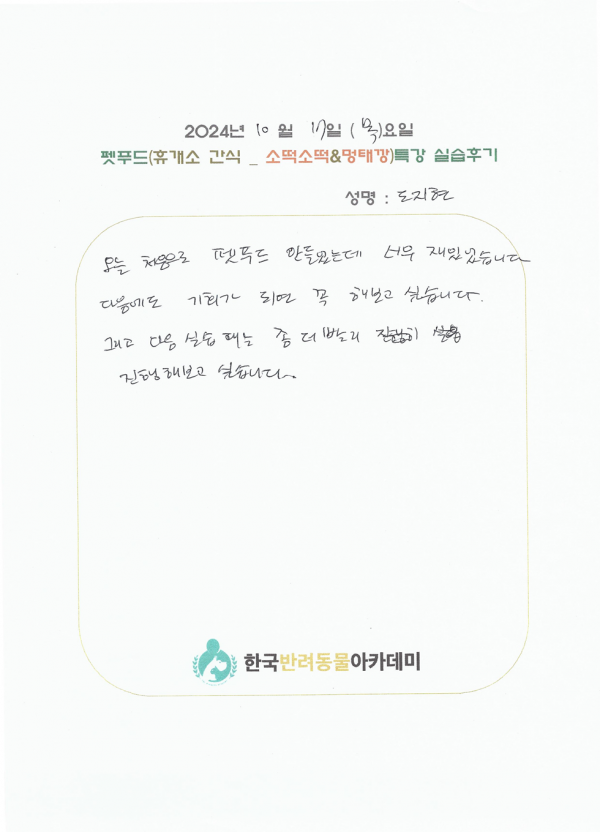 2024년 10 월 17일 (목)요일
펫푸드(휴개소 간식 _ 소떡소떡&멍태깡)특강 실습후기
성명 : 도지현
오늘 처음으로 펫푸드 만들었는데 너무 재밌었습니다
다음에도 기회가 되면 꼭 해보고 싶습니다.
그리고 다음 실습 때는 좀 더 빨리
진행해보고 싶습니다.
한국반려동물아카데미